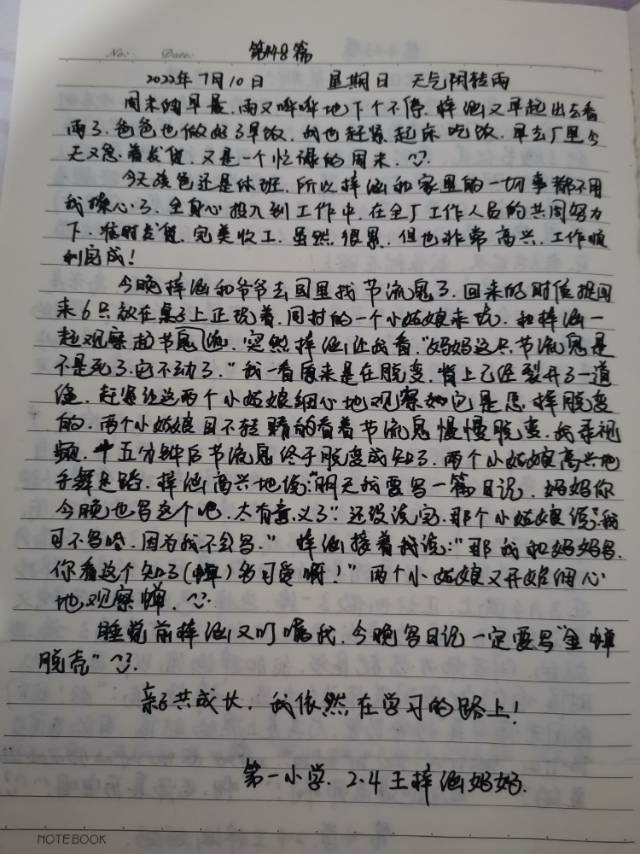 No: Date: 第148篇
2022年7月10日 星期日 天气阴转雨
周末的早晨,雨又哗哗地下个不停,梓涵又早起出去看
雨了,爸爸也做好了早饭,我也赶紧起床吃饭,早去厂里今
天又忍着发货,又是一个忙碌的周末,
今天孩爸还是休班,所以梓涵和家里的一切事都不用
我操心了,全身心投入到工作中,在全厂工作人员的共同努力
下,准时发货,完美收工,虽然很累,但也非常高兴,工作顺
利完成!
今晚梓涵和爷爷去园里找节流龟了,回来的时候捉回
来6只放在桌子上正玩着,同村的一个小姑娘来玩,和梓涵一
起观察起节流龟,突然梓涵让我看,"妈妈这只节流龟是
不是死了,它不动了,"我一看原来是在脱变,背上已经裂开了一道
缝,赶紧让这两个小姑娘细心地观察如它是怎样脱变
的,两个小姑娘目不转睛的看着节流龟慢慢脱变,我录视
频,十五分钟后节流龟终于脱变成知了,两个小姑娘高兴地
手舞足蹈,梓涵高兴地说:"明天我要写一篇日记,妈妈你
今晚也写这个吧,太有意义了"还没说完,那个小姑娘说:"我
可不写哈,因为我不会写,"梓涵接着我说:"那我和妈妈写,
你看这个知了(蝉)多可爱啊!"两个小姑娘又开始细心
地观察蝉,
睡觉前梓涵又叮嘱我,今晚写日记一定要写"金蝉
脱壳"
亲子共成长,我依然在学习的路上!
第一小学,2.4王梓涵妈妈.
NOTEBOOK